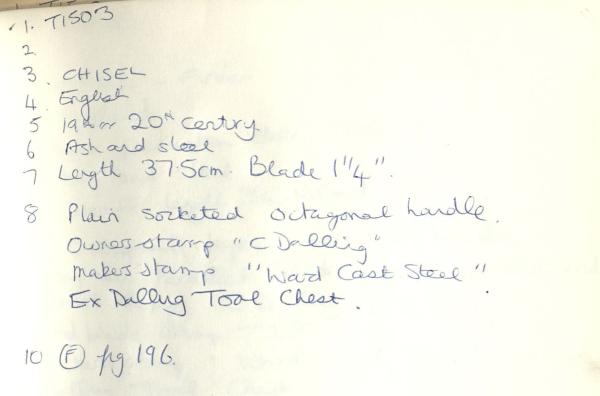 1. TIS03
2
3. CHISEL
4. English
5 19th or 20th Century.
6 Ash and steel
7 Length 37.5cm. Blade 1"1/4".
8 Plain socketed octagonal handle.
Owners stamp "C Dalling"
Makers stamp "Ward Cast Steel".
Ex Dalling Tool Chest.
10 Ⓕ pg 196.